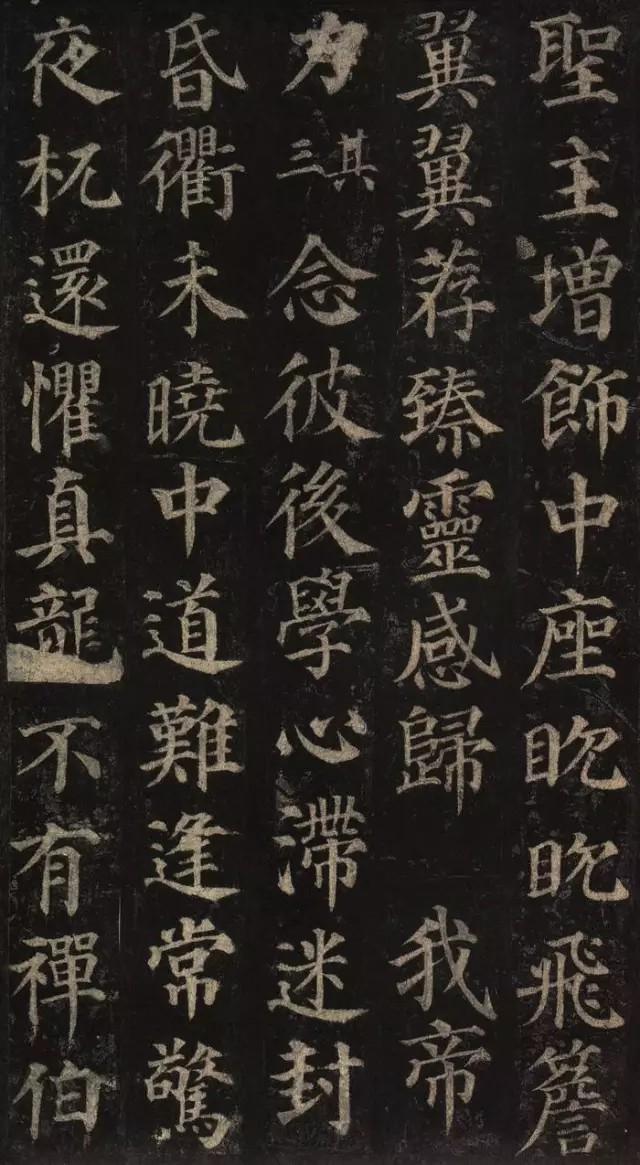 聖主增飾中座眈眈飛簷
翼翼荐臻靈感歸我帝
力其三念彼後學心滯迷封
昏衢未曉中道難逢常驚
夜枙還懼真龍不有禪伯